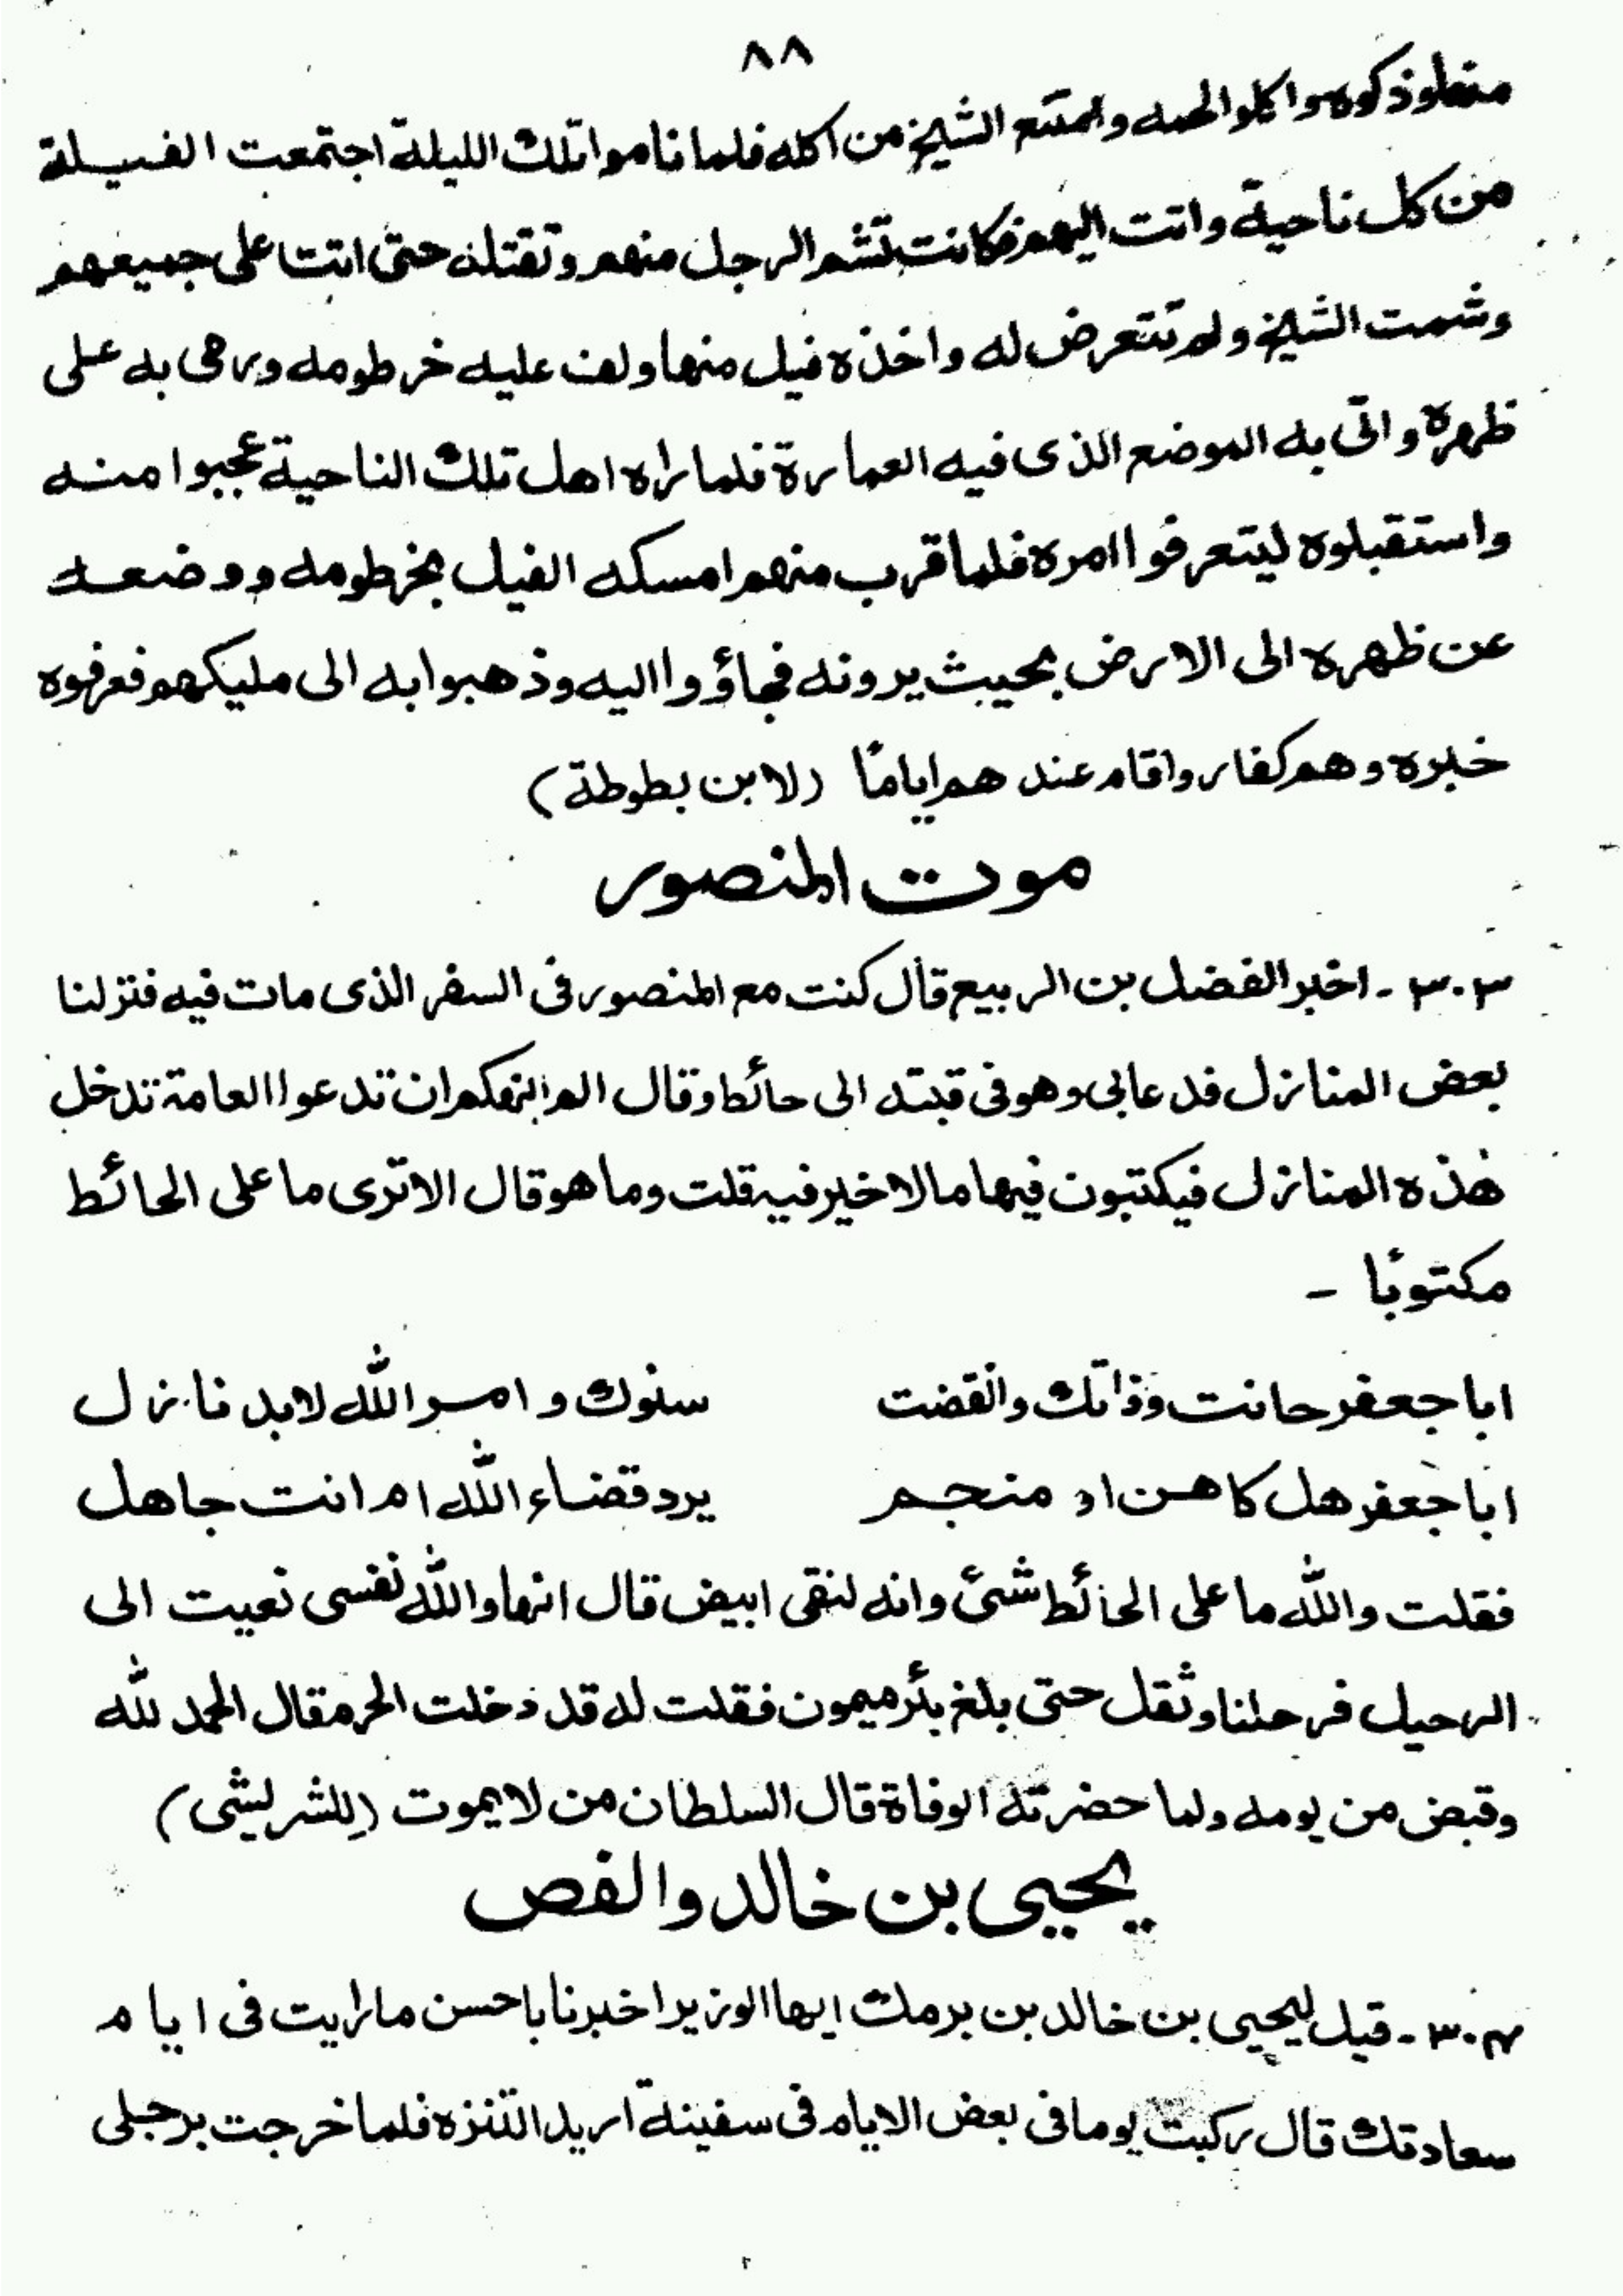 ٨٨
منها وذكوه واكلوا لحمه وامتنع الشيخ من اكله فلما ناموا تلك الليلة اجتمعت الفيلة
من كل ناحية واتت اليهم فكانت تشم الرجل منهم وتقتله حتى اتت على جميعهم
وشمت الشيخ ولم تتعرض له واخذه فيل منها ولف عليه خرطومه ورمى به على
ظهره واتى به الموضع الذى فيه العمارة فلما راه اهل تلك الناحية عجبوا منه
واستقبلوه ليتعرفوا امره فلما قرب منهم امسكه الفيل بخرطومه ووضعه
عن ظهره الى الارض بحيث يرونه فجاؤوا اليه وذهبوا به الى مليكهم فعرفوه
خبره وهم كفار واقام عندهم ايامًا (لابن بطوطة)
موت المنصور
٣٠٣ - اخبر الفضل بن الربيع قال كنت مع المنصور فى السفر الذى مات فيه فنزلنا
بعض المنازل فدعابى وهو فى قبته الى حائط وقال الم انهكم ان تدعوا العامة تدخل
هٰذه المنازل فيكتبون فيها مالا خير فيه قلت وما هو قال الا ترى ما على الحائط
مكتوبًا -
ابا جعفر حانت وفاتك وانقضت سنوك و امر الله لابد نازل
ابا جعفر هل كاهن او منجم يرد قضاء الله ام انت جاهل
فقلت والله ما على الحائط شئ وانه لنقى ابيض قال انها والله نفسى نعيت الى
الرحيل فرحلنا وثقل حتى بلغ بئر ميمون فقلت له قد دخلت الحرم قال الحمد لله
وقبض من يومه ولما حضرته الوفاة قال السلطان من لا يموت (للشريشى)
يحيى بن خالد والفص
٣٠٤ - قيل ليحيى بن خالد بن برمك ايها الوزير اخبرنا باحسن ما رايت فى ايام
سعادتك قال ركبت يوما فى بعض الايام فى سفينة اريد التنزه فلما خرجت برجلى